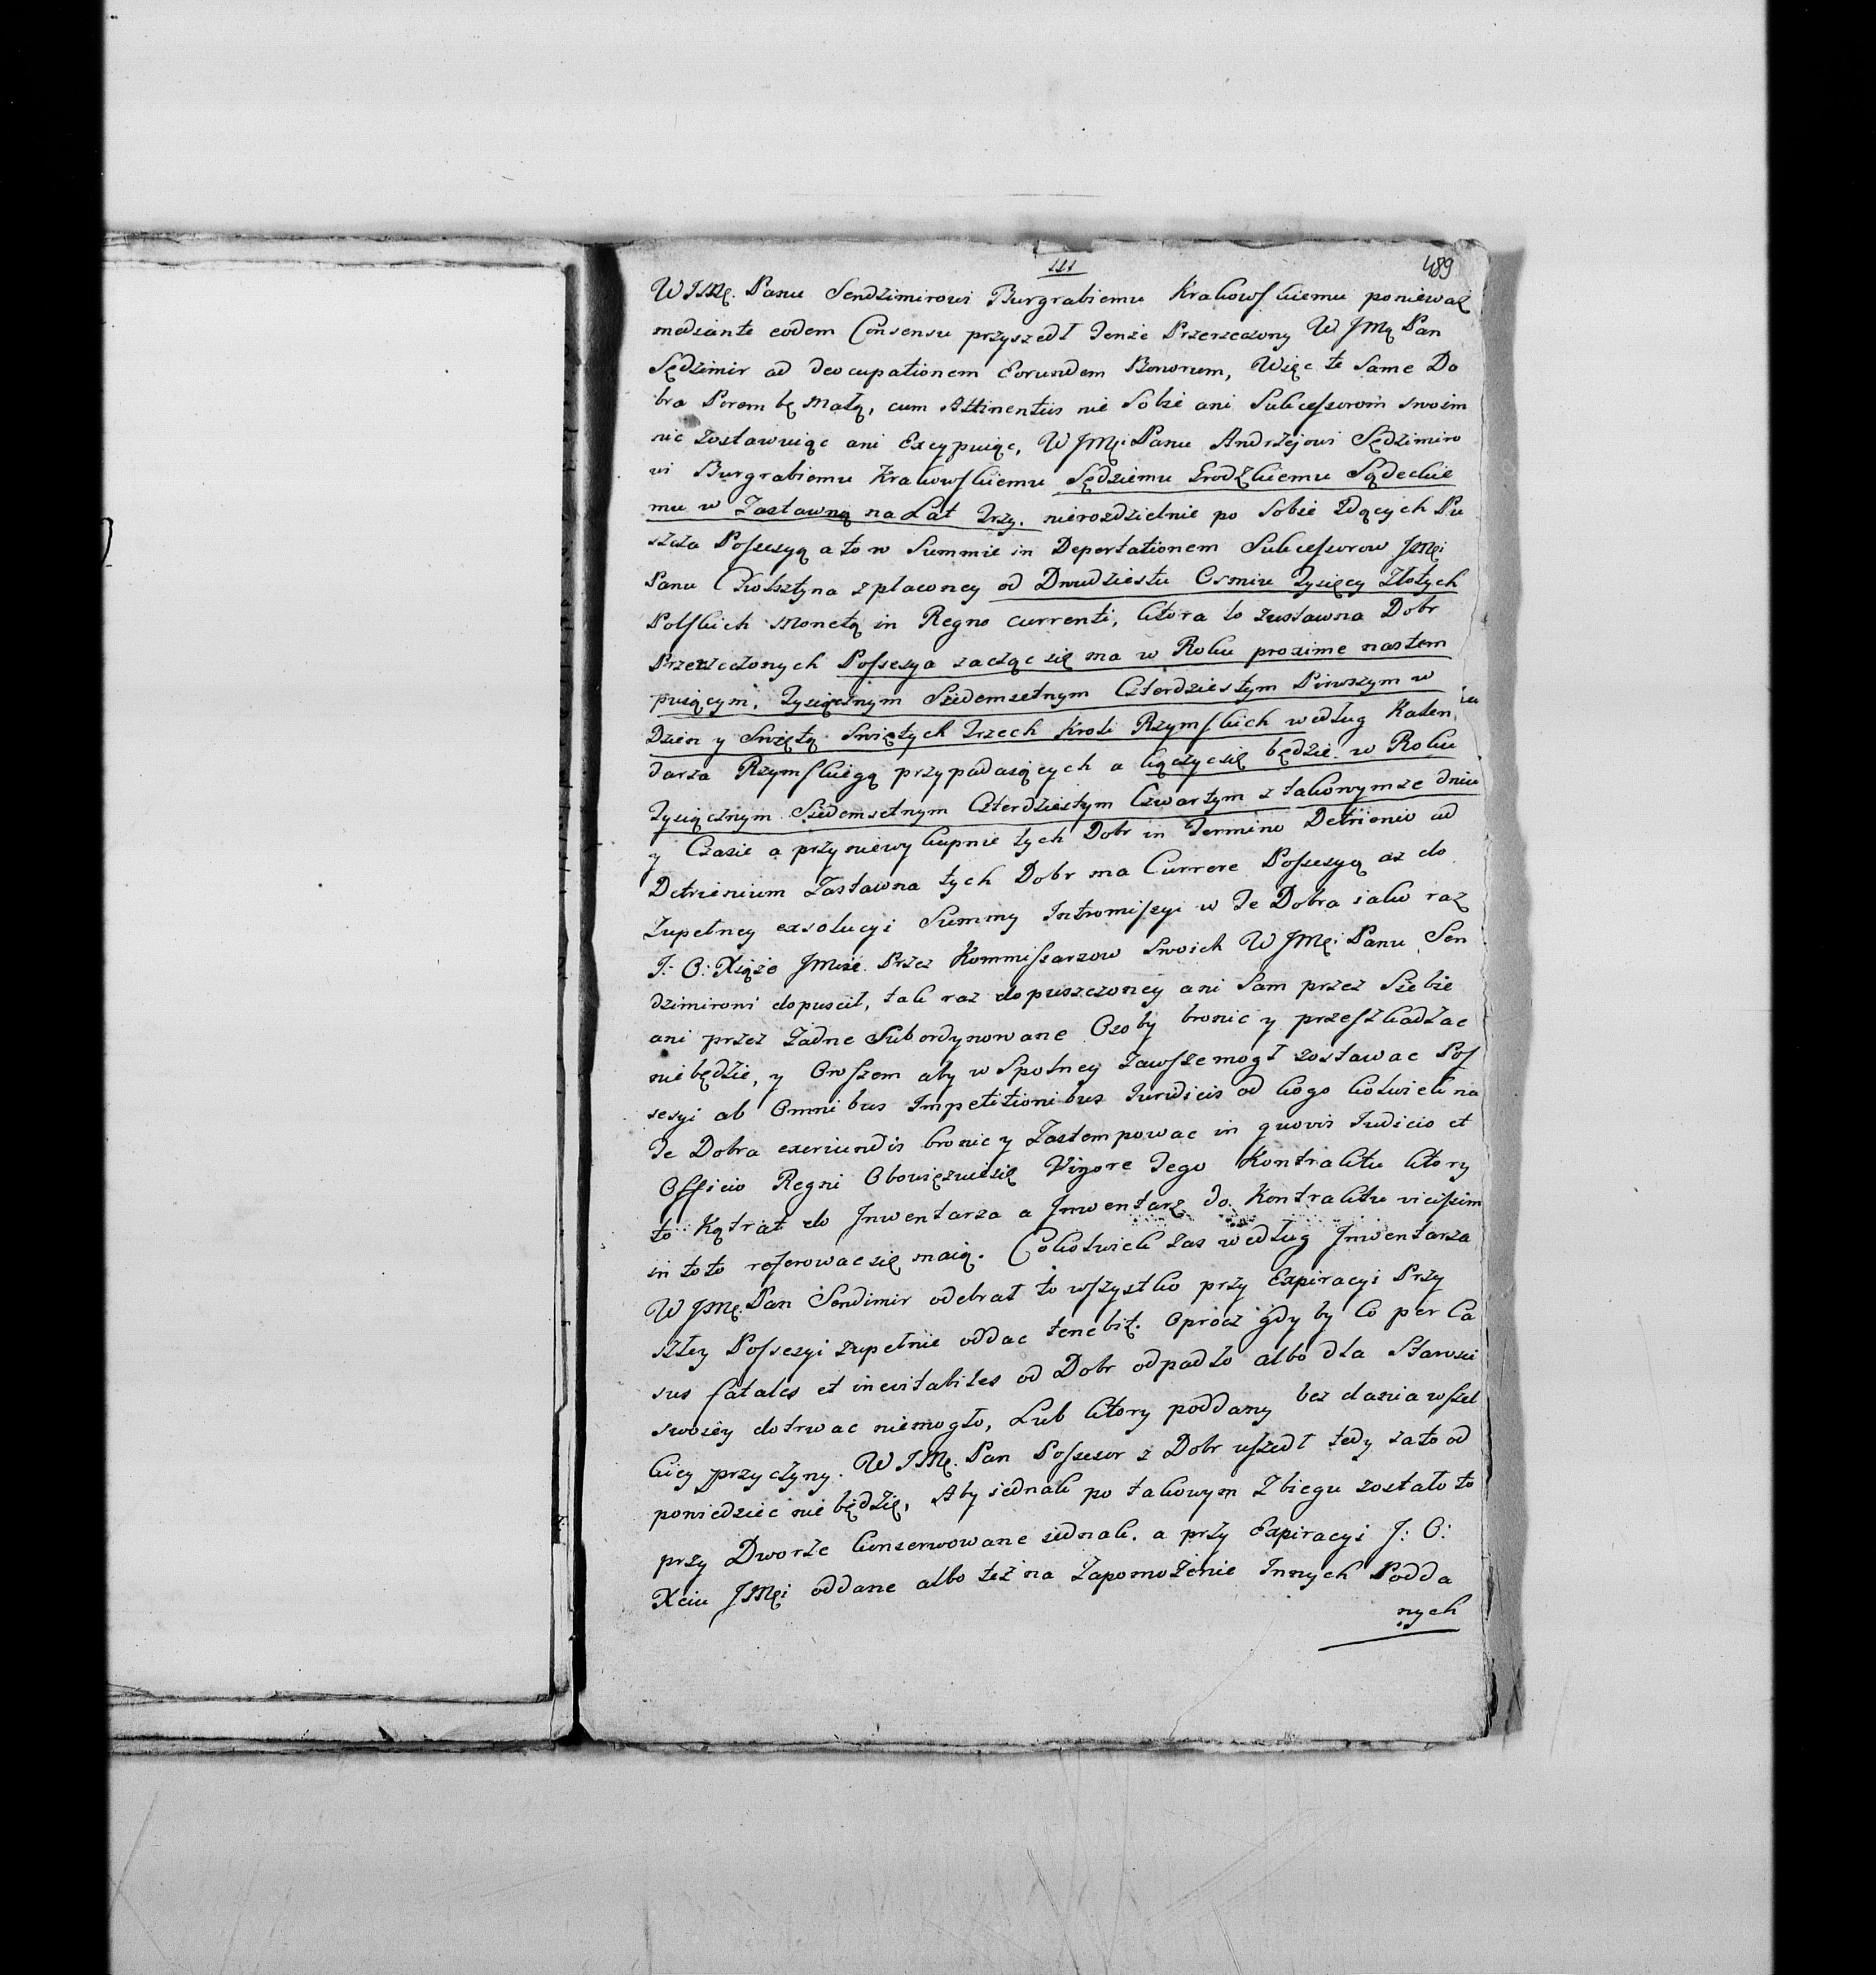 111
489
WJMę. Panu Sendzimirowi Burgrabiemu Krakowskiemu poniewaz
mediante eodem Consensu przyszedł Tenże Przerzeczony W JMę Pan
Sędzimir ad deocupationem Eorundem Bonorum, Więc te Same Do
bra Porembę Małą, cum Attinentiis nie Sobie ani Sukcessorom swoim
nic zostawuiąc ani Excypuiąc, W JMę: Panu Andrzejowi Sędzimiro
wi Burgrabiemu Krakowskiemu Sędziemu Grodzkiemu Sądeckie
mu w Zastawną na Lat Trzy. nierozdzielnie po Sobie Idących Pu
szcza Possesyą a to w Summie in Deportationem Sukcessorow JMęi
Panu Cholsztyna zplaconey od Dwudziestu Osmiu Tysięcy Złotych
Polskich Monetą in Regno currenti, ktora to zastawna Dobr
Przerzeczonych Possesya zacząc się ma w Roku proxime nastem
puiącym, Tysiącznym Siedemsetnym Czterdziestym Pierwszym w
Dzien y Swięta Swiętych Trzech Kroli Rzymskich według Kalen
darza Rzymskiegą przypadaiących a kączyc się będzie w Roku
Tysiącznym Siedemsetnym Czterdziestym Czwartym z takowymze dniu
y Czasie a przy niewykupnie tych Dobr in Termino Detrienio ad
Detrienium Zastawna tych Dobr ma Currere Possesyą az do
Zupełney exsolucyi Summy Intromissyi w Te Dobra iako raz
J: O: Xiąże JMośe. Przez Kommissarzow Swoich W JMęi Panu Sen
dzimirowi dopuscił, tak raz dopuszczoney ani Sam przez Siebie
ani przez Zadne Subordynowane Osoby bronic y przeszkadzac
niebędzie, y Owszem aby w Spolney zawsze mogł zostawac Pos
sesyi ab Omnibus Impetitionibus Iuridicis od kogo kolwiek na
Te Dobra exeriundis bronic y Zastempowac in quovis Iudicio et
Officio Regni Obowięzuiesię Vigore Tego Kontraktu ktory
to Kątrat do Inwentarza a Inwentarz do Kontraktu vicissim
in toto referowac się maią. Cokolwiek zas według Inwentarza
W JMę. Pan Sendimir odebrał to wszystko przy Expiracyi Przy
szłey Possesyi zupełnie oddac tenebit. oprocz gdy by Co per Ca
sus fatales et inevitabiles od Dobr odpadło albo dla Starosci
swoiey dotrwac niemogło, Lub ktory poddany bez dania wszel
kiey przyczyny. W JMę. Pan Possesor z Dobr uszedł tedy zato od
powiedziec nie będzię, Aby iednak po takowym Zbiegu zostało to
przy Dworze konserwowane iednak. a przy Expiracyi J: O:
Xciu JMęi oddane albo też na Zapomożenie Innych Podda
nych